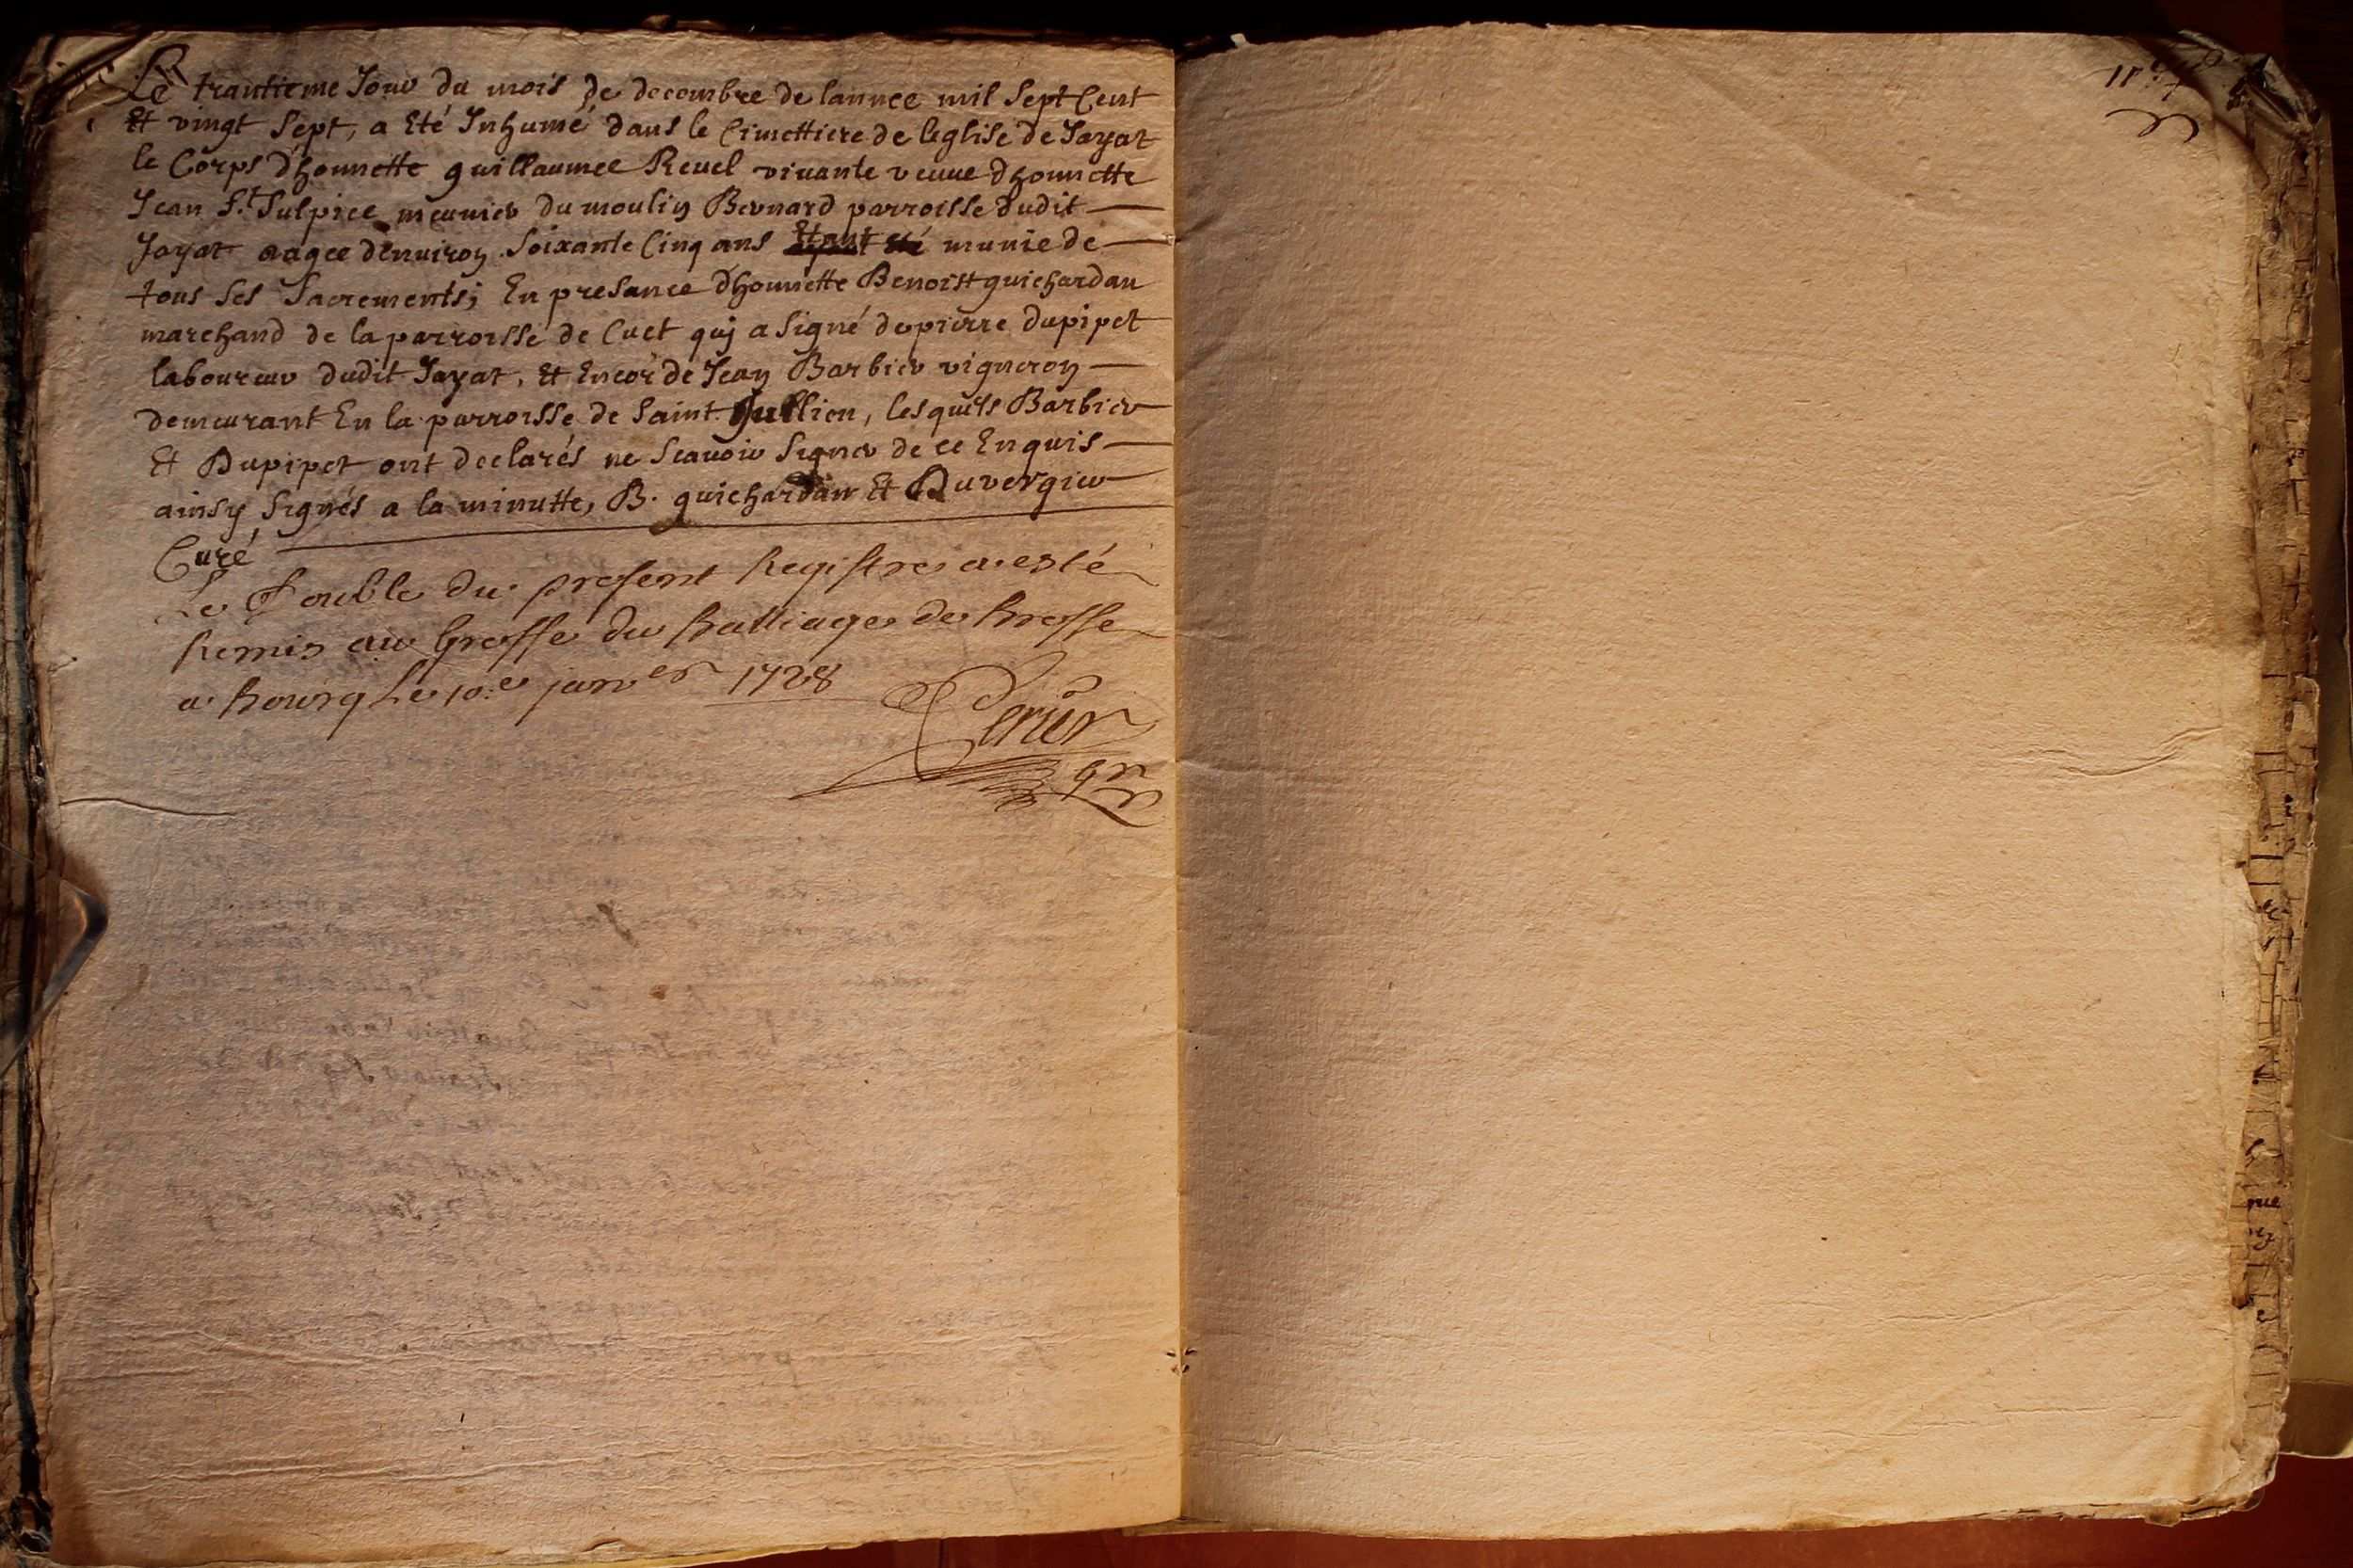 Le trantieme Jour du mois de decembre de lannee mil Sept Cent
Et vingt Sept, a Eté Inhumé dans le Cimettiere de leglise de Jayat
le Corps d'honnette guillaumee Revel vivante veuve d'honnette
Jean S.t Sulpice meunier du moulin Bernard parroisse dudit
Jayat aagee d'environ Soixante Cinq ans Etant Eté munie de
tous Ses Sacrements; En presance d'honnette Benoist guichardan
marchand de la parroisse de Cuet quj a Signé de pierre dupipet
laboureur dudit Jayat, Et Encor de Jean Barbier vigneron
demeurant En la parroisse de Saint Jullien, lesquels Barbier
Et Dupipet ont declarés ne Scavoir Signer de ce Enquis
ainsy Signés a la minutte, B. guichardan Et Duvergier
Curé
Le Double du present Registre a esté
Remis au Greffe du Balliage de Bresse
a Bourg Le 10.e janver 1728
Perier
gr